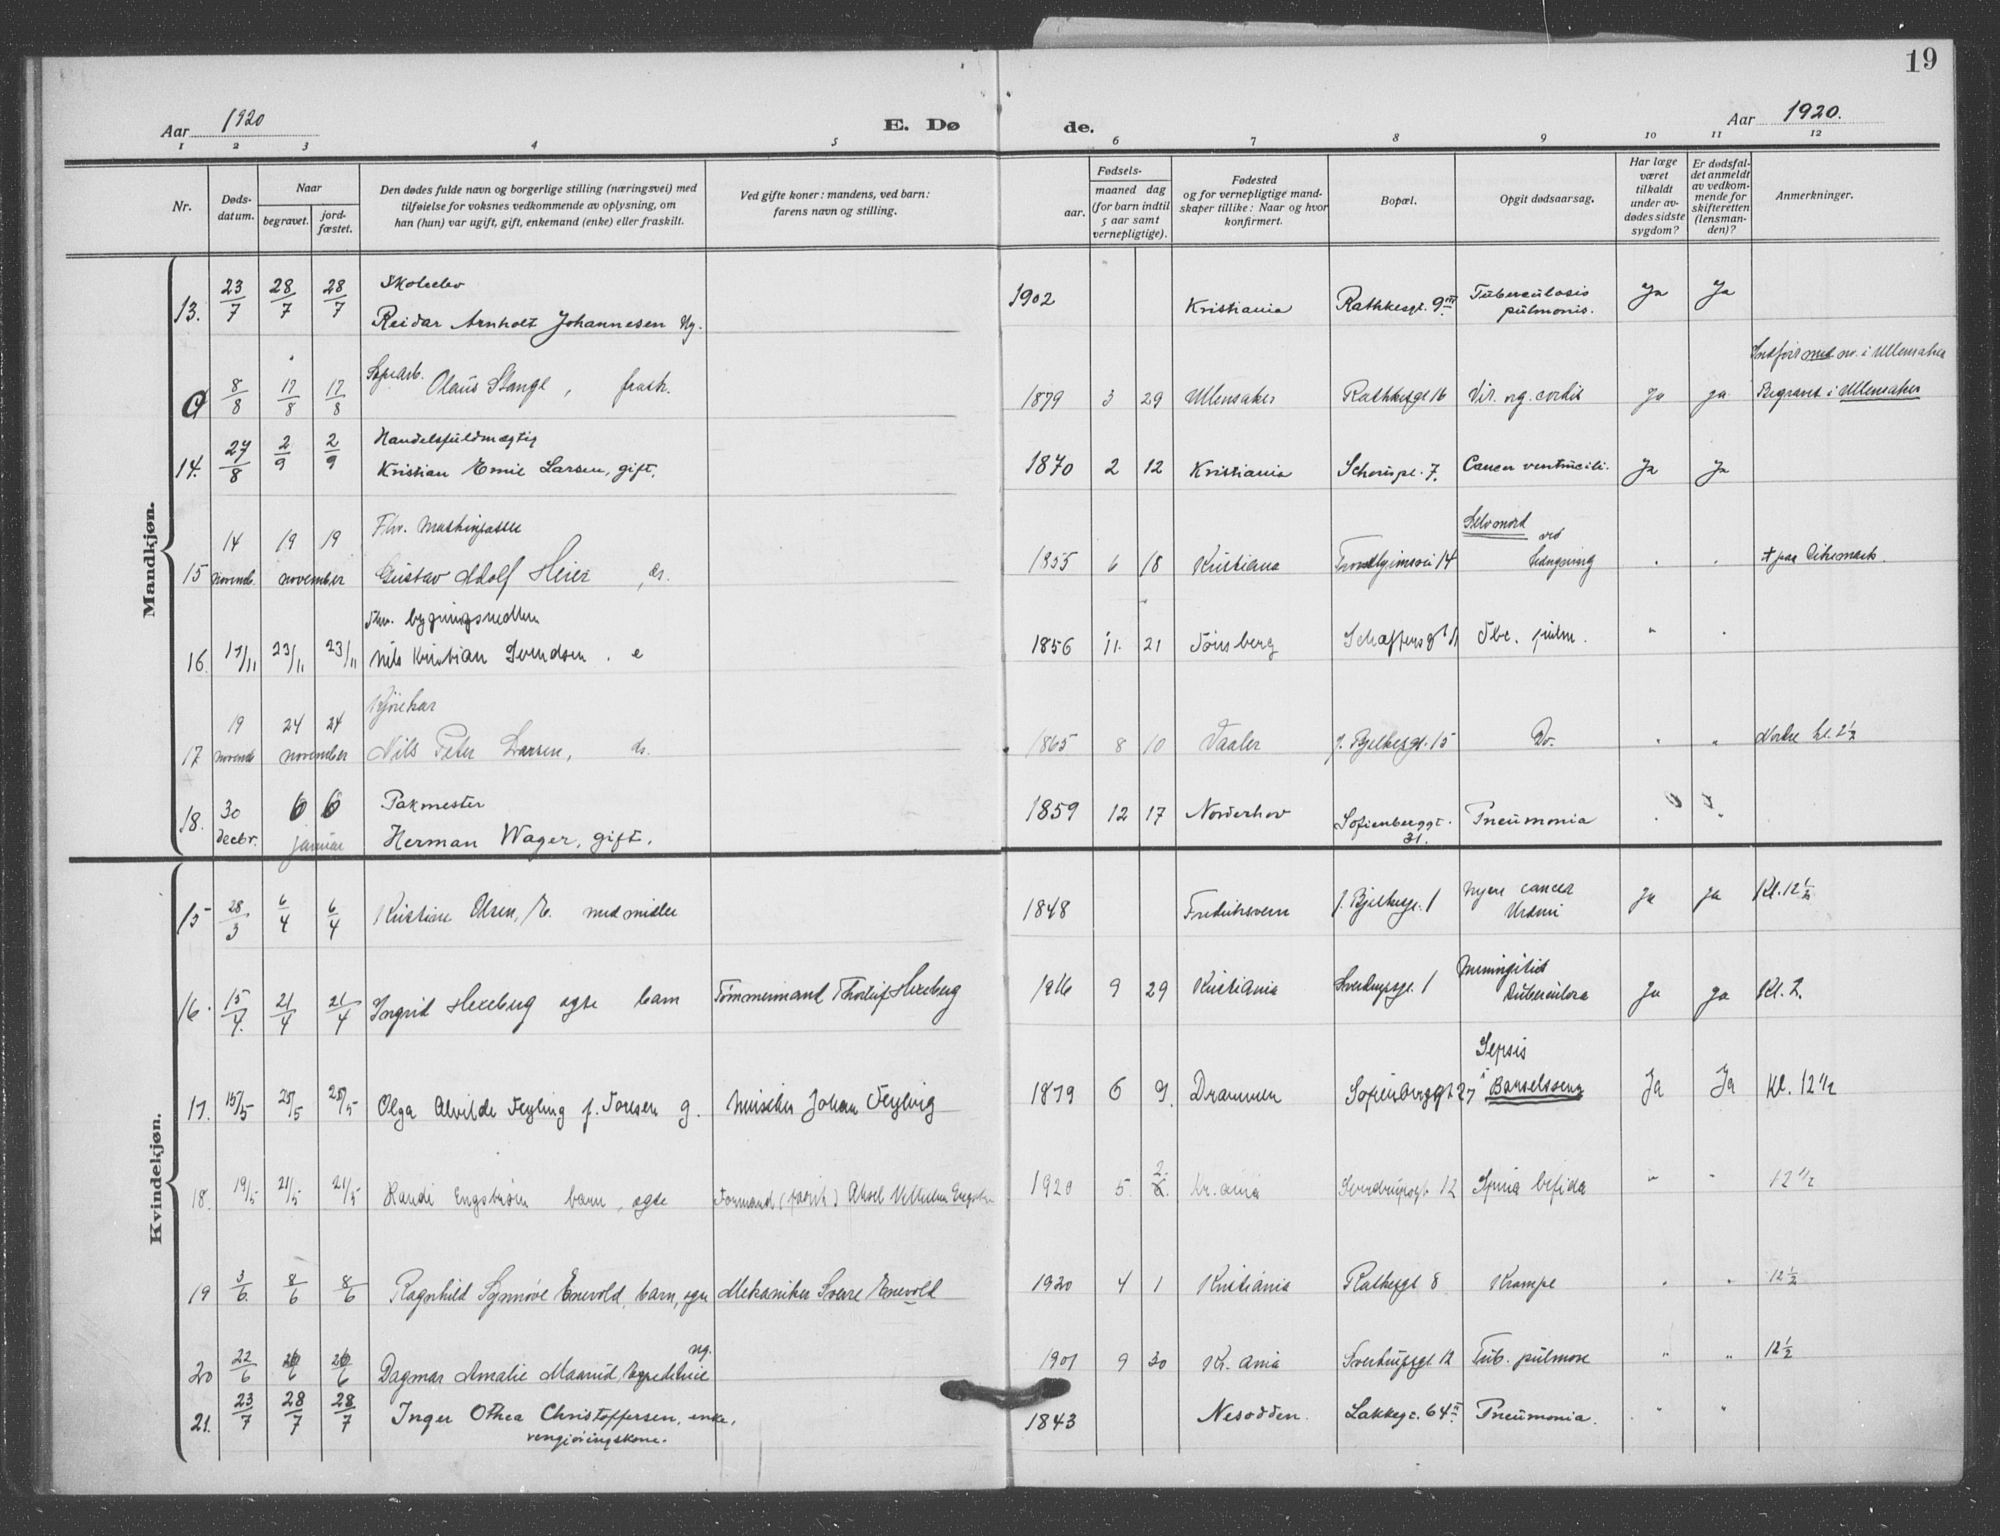 19
Aar 1920 E. Døde. Aar 1920.
1 2 3 4 5 6 7 8 9 10 11 12
Nr.
Døds-
datum.
Naar
begravet.
jord-
fæstet.
Den dødes fulde navn og borgerlige stilling (næringsvei) med
tilføielse for voksnes vedkommende av oplysning, om
han (hun) var ugift, gift, enkemand (enke) eller fraskilt.
Ved gifte koner: mandens, ved barn:
farens navn og stilling.
Fødsels-
aar.
maaned dag
(for barn indtil
5 aar samt
vernepligtige).
Fødested
og for vernepligtige mand-
skaper tillike: Naar og hvor
konfirmert.
Bopæl.
Opgit dødsaarsag.
Har læge
været
tilkaldt
under av-
dødes sidste
sygdom?
Er dødsfal-
det anmeldt
av vedkom-
mende for
skifteretten
(lensman-
den)?
Anmerkninger.
Mandkjøn.
13. 23/7 28/7 28/7 Skoleelev
Reidar Arnholt Johannesen Ug. 1902 Kristiania Rathkesgt. 9 III Tuberculosis
pulmonis. Ja Ja
8/8 17/8 17/8 Olaus Stange, frask. 1879 3 29 Ullensaker Rathkesgt 16 cordis Ja ja nr. i Ullensaker
Begravet i Ullensaker
14. 27/8 2/9 2/9 Handelsfuldmægtig
Kristian Emil Larsen, gift. 1870 2 12 Kristiania Schouspl. 7. Cancer ventriculi. Ja Ja
15 14 novemb. 19 19 november Fhv.
Gustav Adolf Heier, ds. 1855 6 18 Kristiania Trondhjemsvei 14 Selvmord
ved
hængning . . † paa Dikemark.
16. 17/11 23/11 23/11 Fhv.
Nils Kristian Svendsen. e 1856 11. 21 Tønsberg Schæffersgt 11 Tbc. pulm. " .
17 19 novemb 24 24 november Kjørekar
Nils Peter Larsen, ds. 1865 8 10 Vaaler J. Bjelkesgt. 15 Do. " " Nordre kl. 2 1/2
18. 30 decbr. 6 6 januar Pakmester
Herman Wager, gift. 1859 12 17 Norderhov Sofienberggt.
31. Pneumonia
Kvindekjøn.
15 28/3 6/4 6/4 Kristine Olsen, E. med midler 1848 Fredriksvern J. Bjelkesgt. 1 cancer
Ja ja Kl. 12 1/2
16. 15/4. 21/4 21/4 Ingrid Hexeberg egte barn Tømmermand Thorleif Hexeberg 1916 9 29 Kristiania Sverdrupsgt. 1 Meningitis
Tuberculosa Ja ja Kl. 2.
17. 15/5 25/5 25/5 Olga Alvilde Feyling f. Joresen g. Musiker Johan Feyling 1879 6 9. Drammen Sofienberggt 27 Sepsis
i Barselsseng Ja Ja Kl. 12 1/2
18. 19/5 21/5 21/5 Randi Engstrøm barn, egte Formand (fabrik) Aksel Vilhelm Engstrøm 1920 5. 2. Kr.ania Sverdrupsgt. 12 Spina bifida " " 12 1/2
19 3/6. 8/6 8/6 Ragnhild Synnøve Enevold, barn, egte Mekaniker Sverre Enevold 1920 4 1 Kristiania Rathkesgt 8 Krampe " " 12 1/2
20 22/6 26/6 26/6 Dagmar Amalie Maarud, expeditrice ug. 1901 9 30 Kr.ania Sverdrupsgt 12 Tub. pulmon " " 12 1/2
21. 23/7 28/7 28/7 Inger Othea Christoffersen, enke,
rengjøringskone. 1843 Nesodden. Lakkegt. 64 II Pneumonia. " "